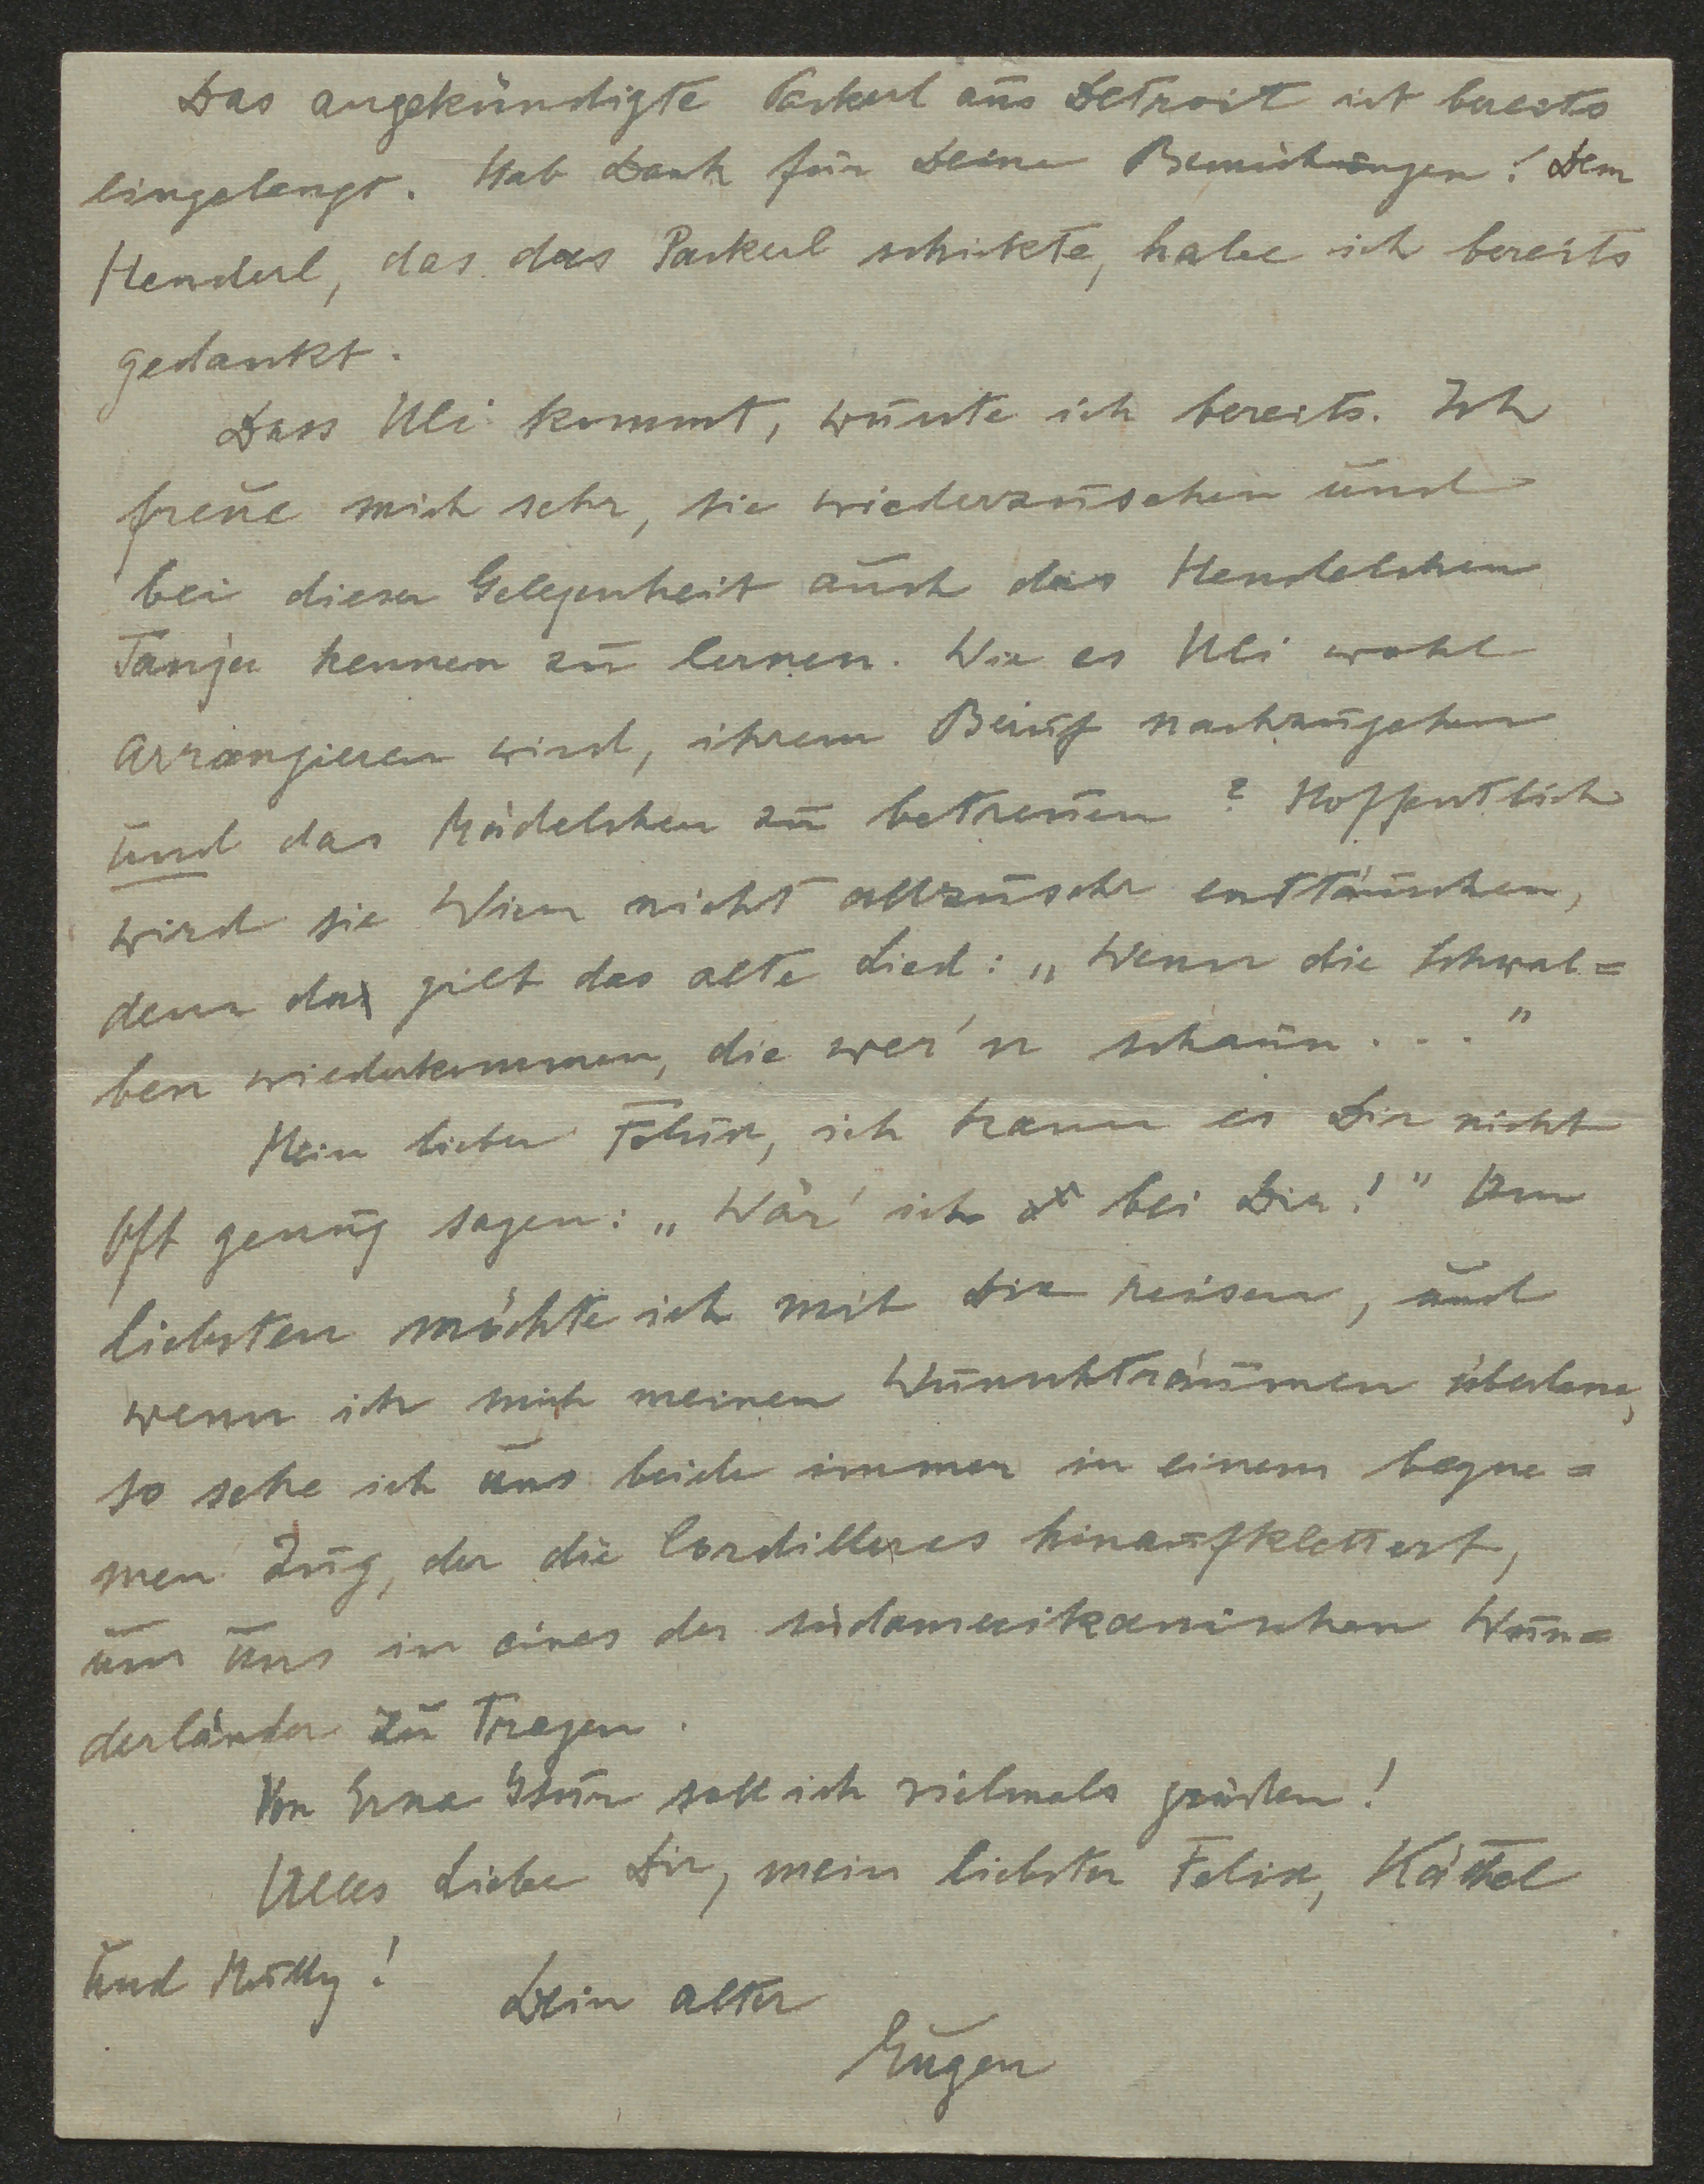 Das angekündigte Packerl aus Detroit ist bereits
eingelangt. Hab Dank für Deine Bemühungen! Dem
Henderl, das das Packerl schickte, habe ich bereits
gedankt.
Dass Uli kommt, wusste ich bereits. Ich
freue mich sehr, sie wiederzusehen und
bei dieser Gelegenheit auch das Hendelchen
Tanja kennen zu lernen. Wie es Uli wohl
arrangieren wird, ihrem Beruf nachzugehen
und das Mädelchen zu betreuen? Hoffentlich
wird sie Wien nicht allzusehr enttäuschen,
denn da gilt das alte Lied: „Wenn die Schwal=
ben wiederkommen, die wer'n schaun..."
Mein lieber Felix, ich kann es Dir nicht
oft genug sagen: „Wär' ich bei Dir!" Am
liebsten möchte ich mit Dir reisen, und
wenn ich mich meinen Wunschträumen überlasse,
so sehe ich uns beide immer in einem beque=
men Zug, der die Cordilleres hinaufklettert,
um uns in eines der südamerikanischen Wun=
derländer zu tragen.
Von Erna soll ich vielmals grüßen!
Alles Liebe Dir, mein liebster Felix, Kättel
und Mutty!
Dein alter
Eugen